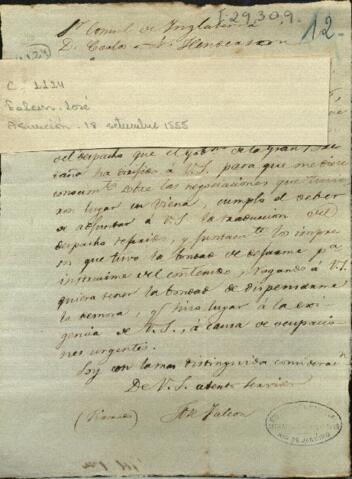 I-29.30.9.
12.
Sr. Consul de Inglaterra
D. Carlos A. Henderson
(1124)
C. 1124
Falcon, José
Asunción - 18 setembro 1855
del despacho que el gobno. de la Gran Bre
taña ha dirijido á V.S. para que me diese
conocimto. sobre las negociaciones que tuvie
ron lugar en Viena, cumplo el deber
de adjuntar á V.S. la traduccion del
despacho referido, y juntamte. los impre
sos que tuvo la bondad de dejarme pa.
instruirme del contenido, rogando á V.S.
quiera tener la bondad de dispensarme
la demora, que hizo lugar á la exi
gencia de V.S., á causa de ocupacio
nes urgentes.
Soy con la mas distinguida considerasn.
De V.S. atento servidor
(Firmado) José Falcon
RIO DE JANEIRO